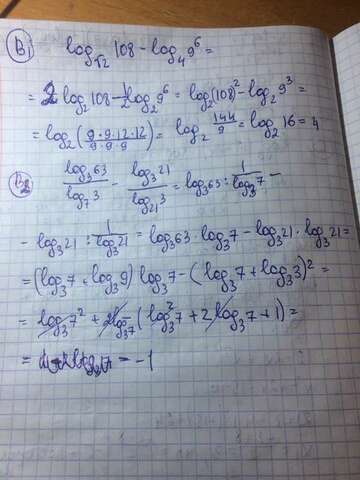 B1) log_√2 108 - log_4 9^6 =
= 2 log_2 108 - 1/2 log_2 9^6 = log_2 (108)^2 - log_2 9^3 =
= log_2 (9·9·12·12 / 9·9·9) = log_2 144/9 = log_2 16 = 4
B2) log_3 63 / log_7 3 - log_3 21 / log_21 3 = log_3 63 : 1/log_3 7 -
- log_3 21 : 1/log_3 21 = log_3 63 · log_3 7 - log_3 21 · log_3 21 =
= (log_3 7 + log_3 9) log_3 7 - (log_3 7 + log_3 3)^2 =
= log_3 7^2 + 2log_3 7 - (log_3^2 7 + 2 log_3 7 + 1) =
= = -1